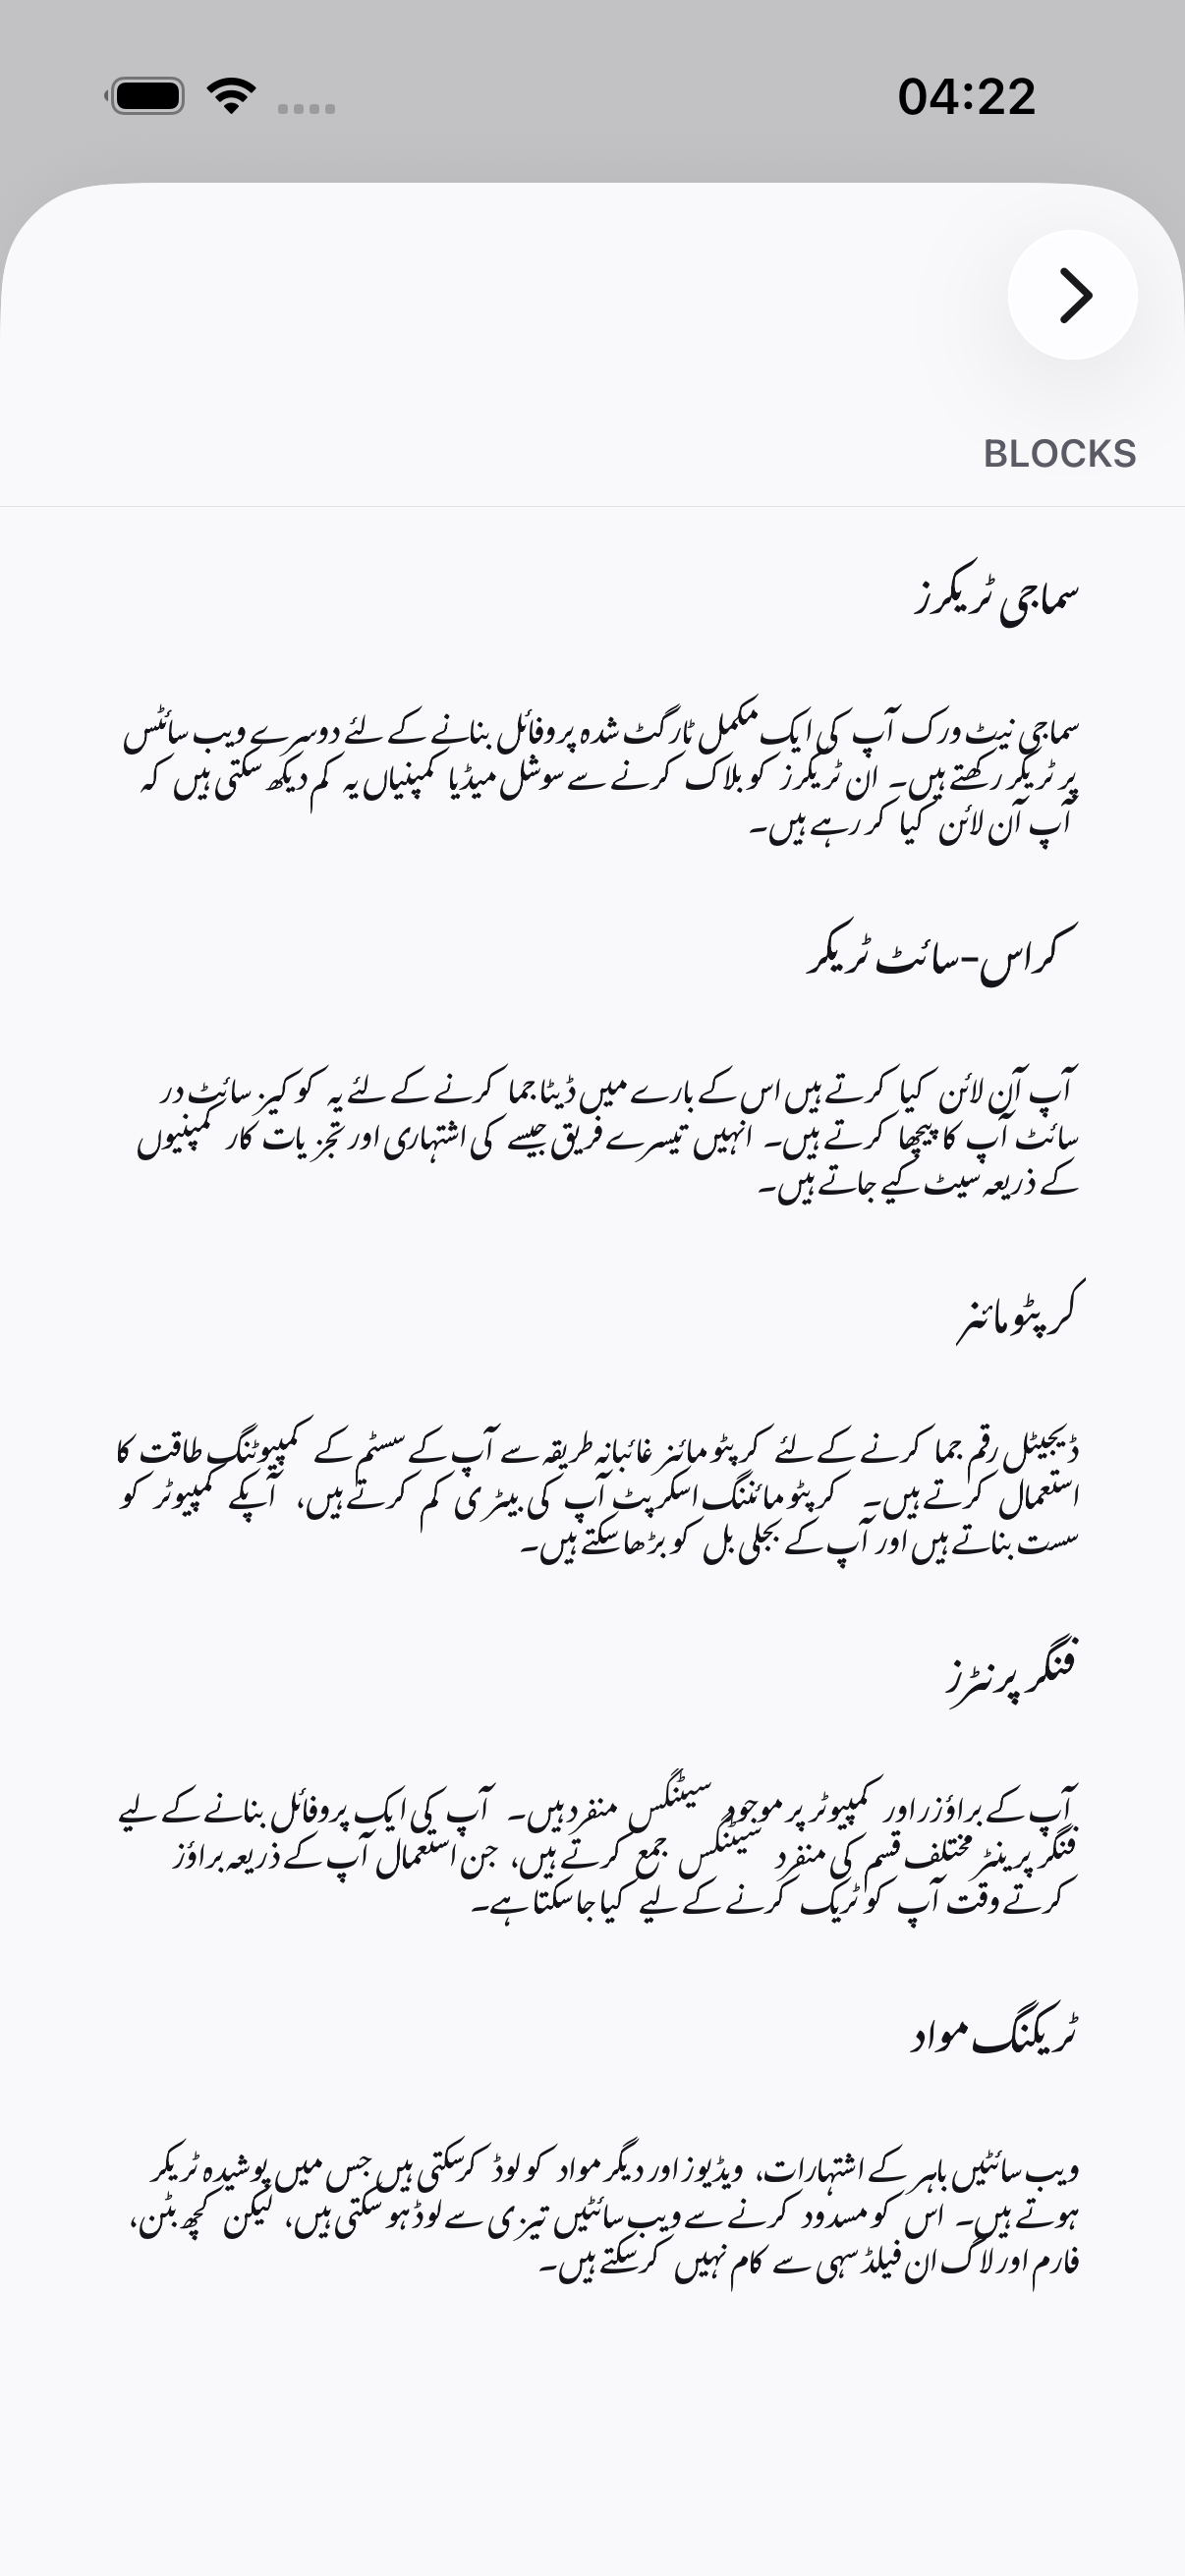 04:22
BLOCKS
سماجی ٹریکرز
سماجی نیٹ ورک آپ کی ایک مکمل ٹارگٹ شدہ پروفائل بنانے کے لئے دوسرے ویب سائٹس
پر ٹریکر رکھتے ہیں۔ ان ٹریکرز کو بلاک کرنے سے سوشل میڈیا کمپنیاں یہ کم دیکھ سکتی ہیں کہ
آپ آن لائن کیا کر رہے ہیں۔
کراس-سائٹ ٹریکر
آپ آن لائن کیا کرتے ہیں اس کے بارے میں ڈیٹا جما کرنے کے لئے یہ کوکیز سائٹ در
سائٹ آپ کا پیچھا کرتے ہیں۔ انہیں تیسرے فریق جیسے کی اشتہاری اور تجزیات کار کمپنیوں
کے ذریعہ سیٹ کیے جاتے ہیں۔
کرپٹومائنر
ڈیجیٹل رقم جما کرنے کے لئے کرپٹومائنز غائبانہ طریقہ سے آپ کے سسٹم کے کمپیوٹنگ طاقت کا
استعمال کرتے ہیں۔ کرپٹومائننگ اسکرپٹ آپ کی بیٹری کم کرتے ہیں، آپکے کمپیوٹر کو
سست بناتے ہیں اور آپ کے بجلی بل کو بڑھا سکتے ہیں۔
فنگر پرنٹرز
آپ کے براؤزر اور کمپیوٹر پر موجود سیٹنگس منفرد ہیں۔ آپ کی ایک پروفائل بنانے کے لیے
فنگر پرینٹر مختلف قسم کی منفرد سیٹنگس جمع کرتے ہیں، جن استعمال آپ کے ذریعہ براؤز
کرتے وقت آپ کو ٹریک کرنے کے لیے کیا جا سکتا ہے۔
ٹریکنگ مواد
ویب سائٹیں باہر کے اشتہارات، ویڈیوز اور دیگر مواد کو لوڈ کرسکتی ہیں جس میں پوشیدہ ٹریکر
ہوتے ہیں۔ اس کو مسدود کرنے سے ویب سائٹیں تیزی سے لوڈ ہو سکتی ہیں، لیکن کچھ بٹن،
فارم اور لاگ ان فیلڈ سہی سے کام نہیں کرسکتے ہیں۔